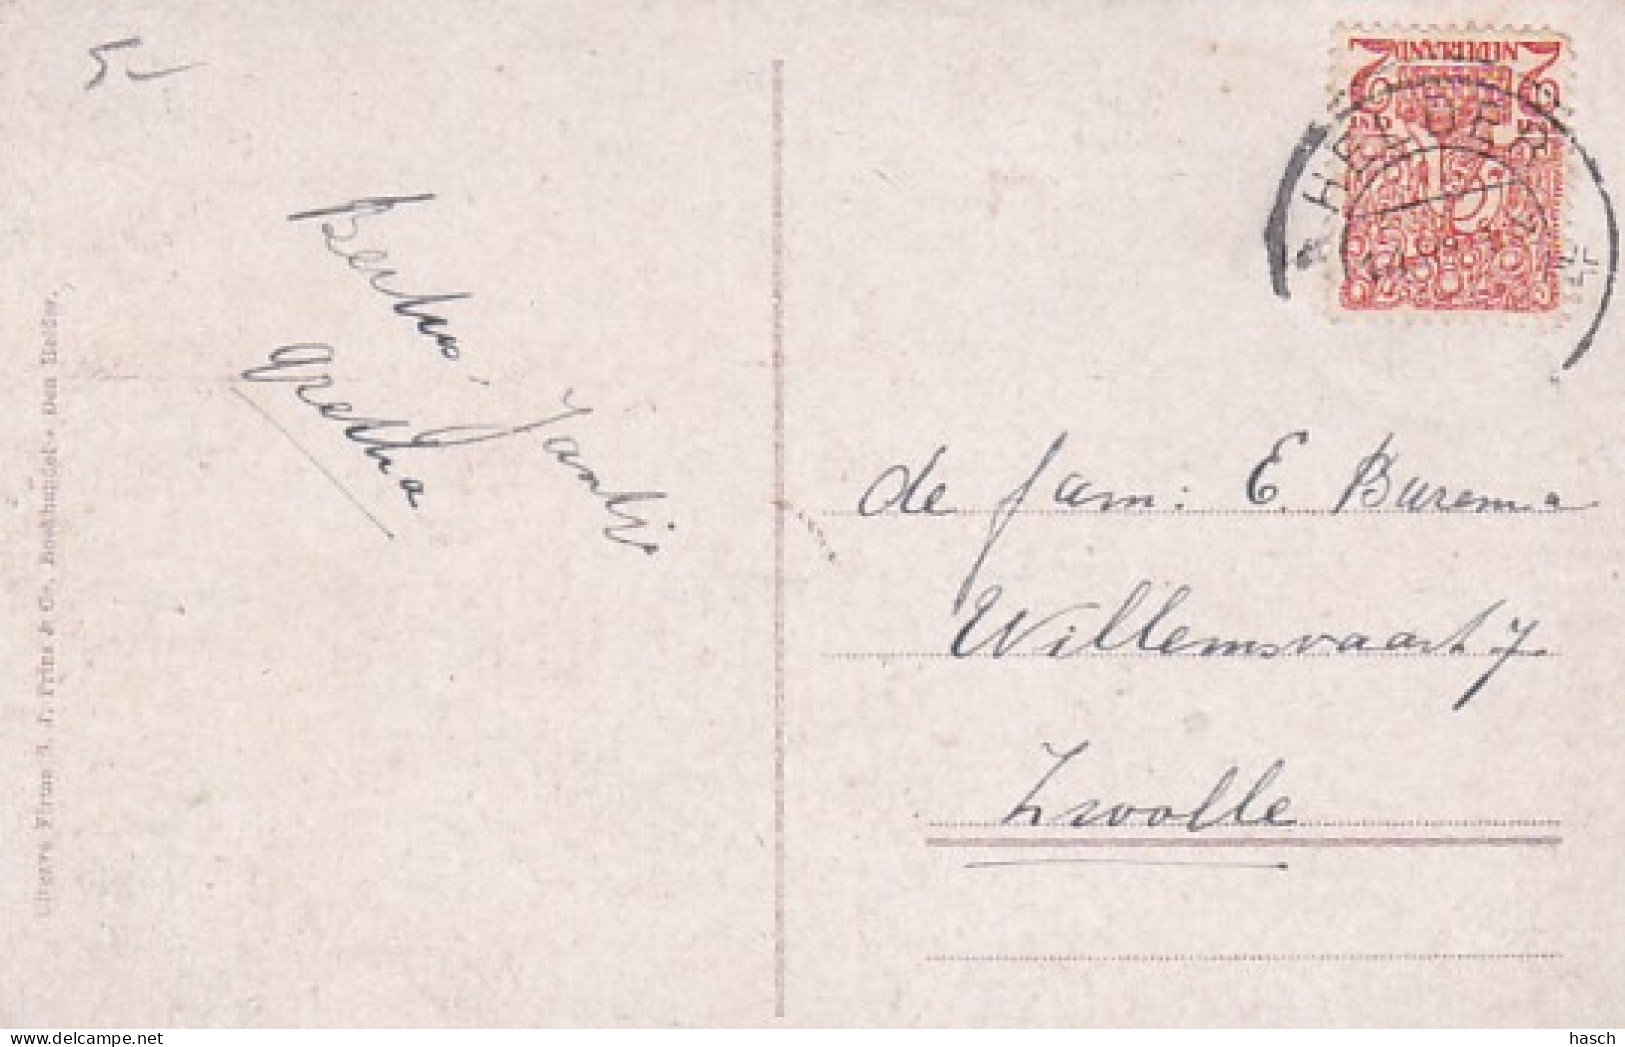 5-
NEDERLAND
2 2
HELDER
Bertus,
Jantje
Gretha
de fam: E. Burema
Willemsvaart 7
Zwolle
Uitgave Firma A. J. Prins & Co. Boekhandel - Den Helder.
hasch
delcampe.net